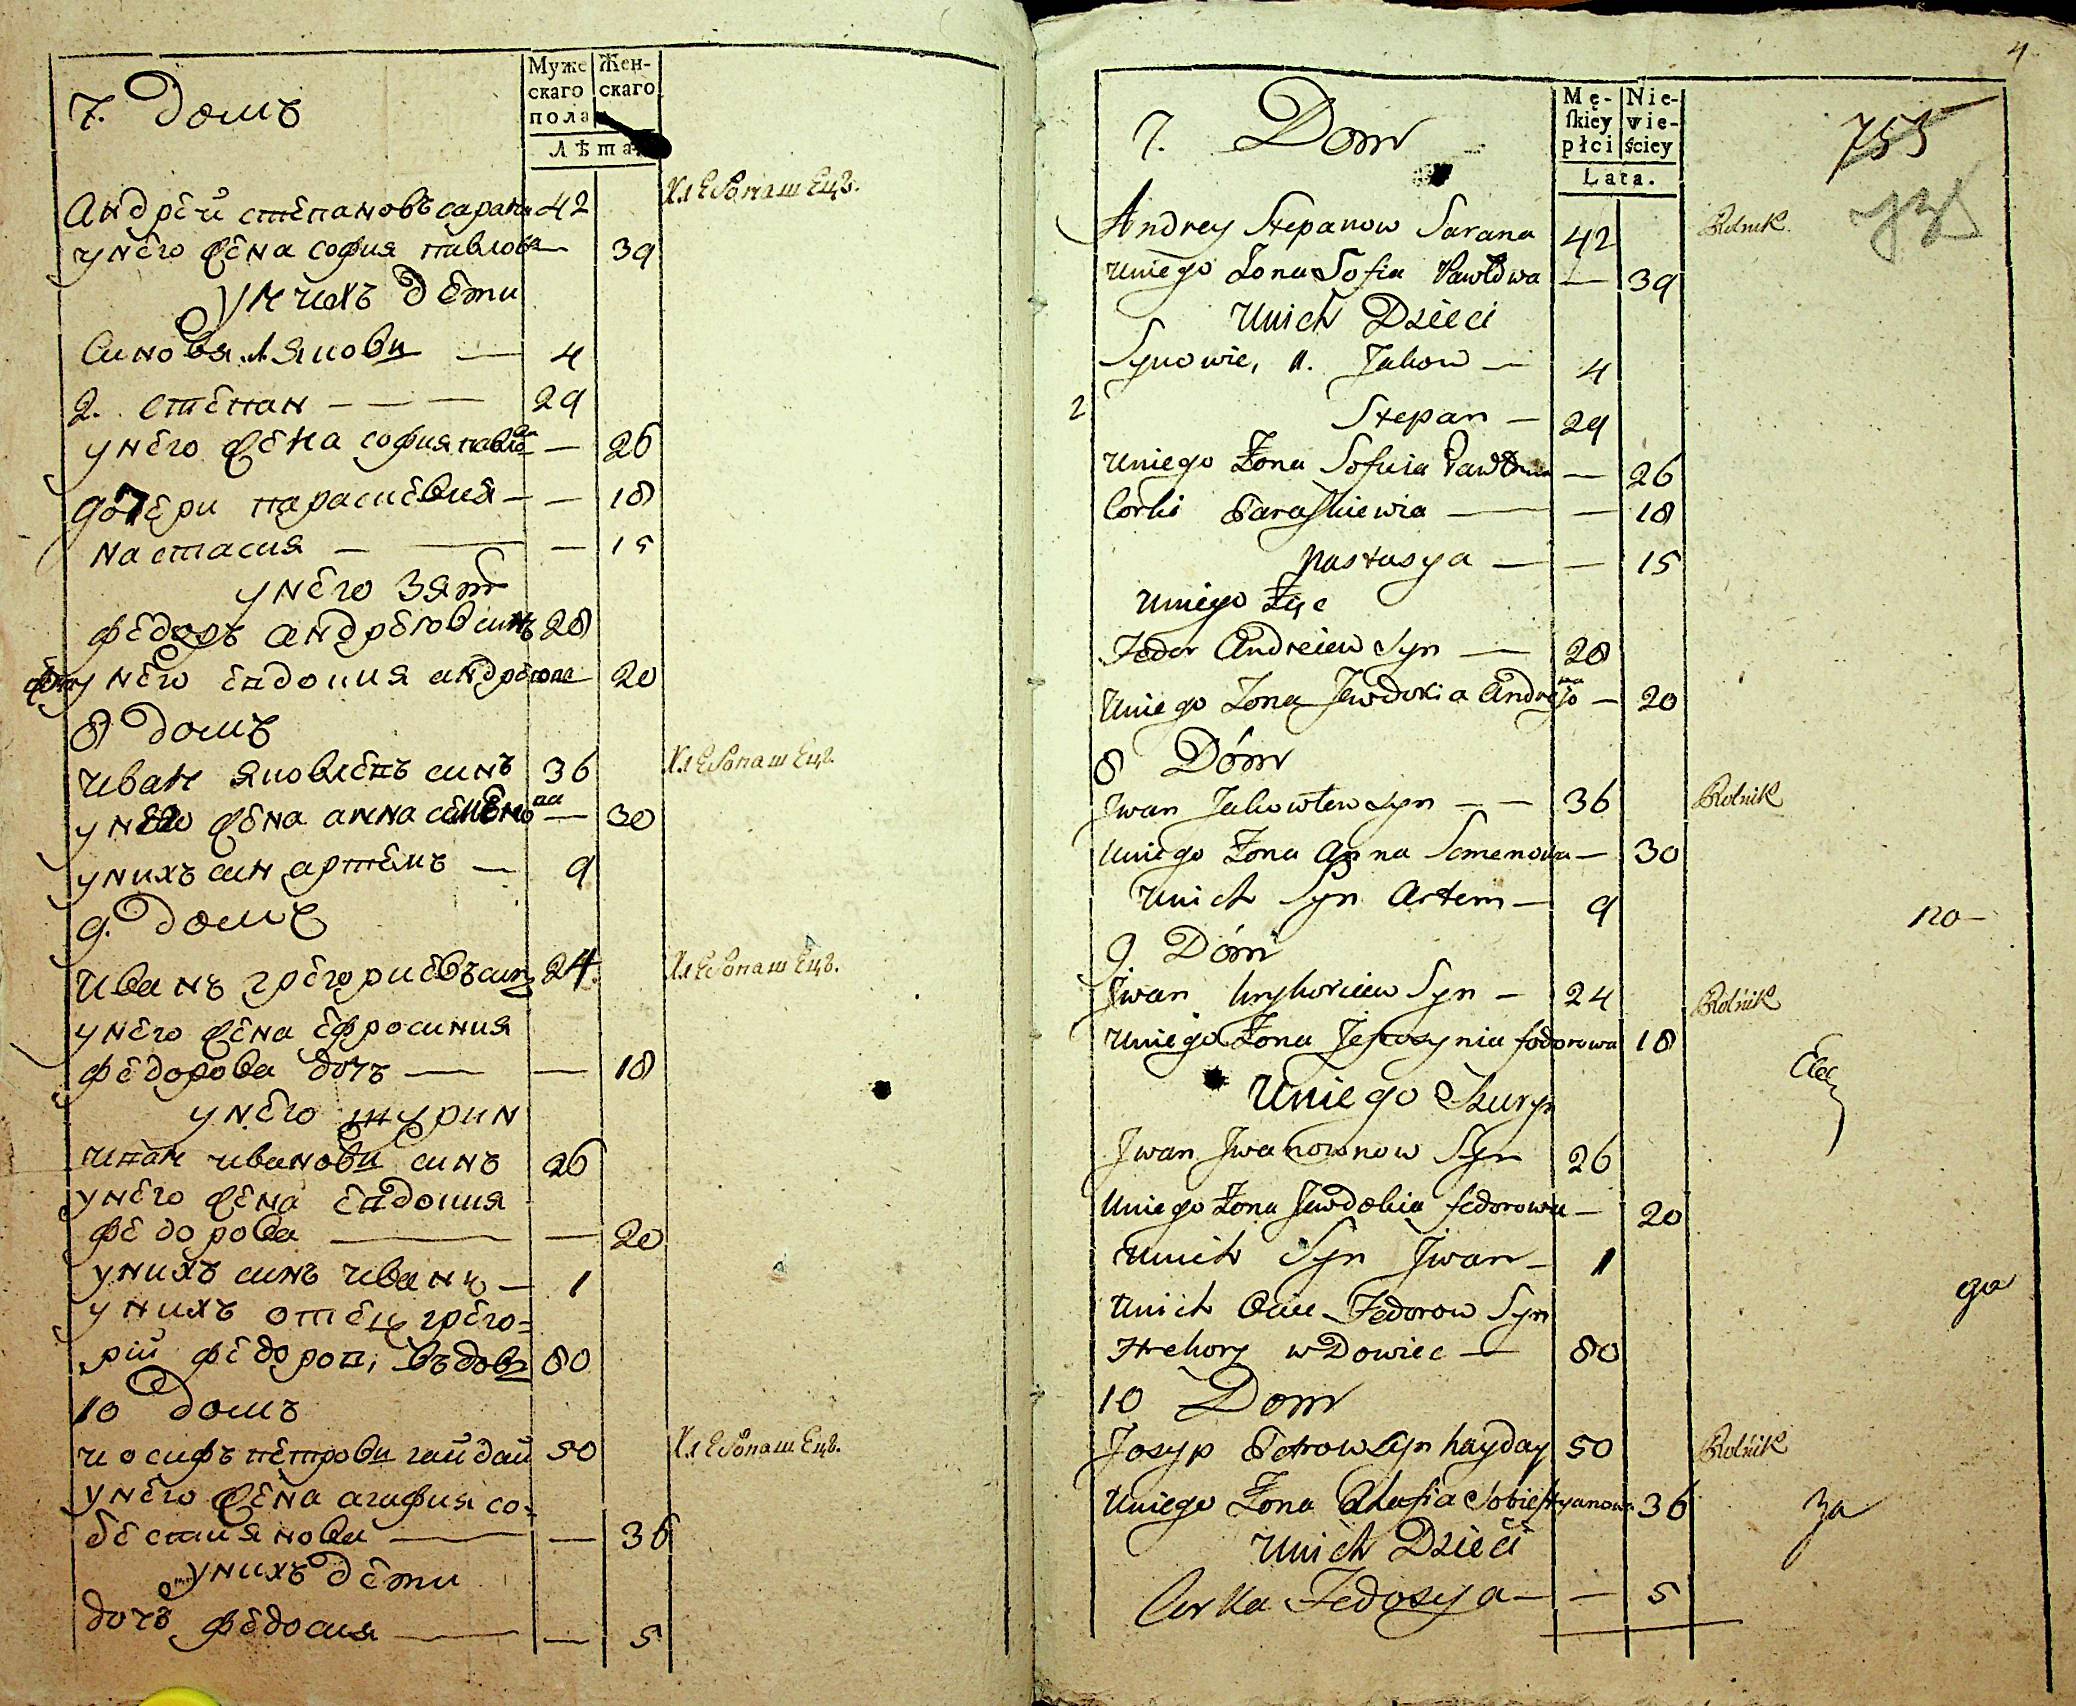 Муже
скаго
пола
Жен-
скаго
Лѣта
7. Домъ
Андрей степановъ сарана 42
Хлебопашецъ.
у него жена софия павлова — 39
У них дети
Синовя. 1. яковъ — 4
2. степан — — — 29
у него жена софия павло — 26
дочери параскевия — — 18
настасия — — — 15
у него зят
федоръ андреювъ синъ 28
жена у него евдокия андреюва 20
8 домъ
иван яковлевъ синъ 36
Хлебопашецъ.
у него жена анна семенова — 30
у нихъ син артемъ — 9
9. домъ
иванъ грегориевъ синъ 24.
Хлебопашецъ.
у него жена ефросиния
федорова дочъ — — 18
у него шурин
иван ивановъ синъ 26
у него жена евдокия
федорова — — 20
у нихъ синъ иванъ — 1
у нихъ отец грего=
рий федоров, вдовъ 80
10 домъ
иосифъ петровъ гайдай 50
Хлебопашецъ.
у него жена агафия со=
бестиянова — — 36
у нихъ дети
дочъ федосия — — 5
4
Mę-
skiey
płci
Nie-
wie-
ściey
Lata.
755
7. Dom
Andrey Stepanow Sarana 42
Rolnik
uniego Żona Sofia Pawłowa — 39
Unich Dzieci
Synowie, 1. Jakow — 4
2 Stepan — 29
uniego Żona Sofiia Pawłowa — 26
Corki Paraskiewia — — 18
Nastasya — — 15
uniego Zięc
Fedor Andreiew Syn — 28
Uniego Żona Jewdokia Andrejowa — 20
8 Dóm
Jwan Jakowlew Syn — — 36
Rolnik
Uniego Żona Anna Semenowa — 30
Unich Syn Artem — 9
по —
9 Dóm
Jwan hryhoriew Syn — 24
Rolnik
Uniego Żona Jefrosynia fodorowa 18
Uniego Szuryn
Jwan Jwanownow Syn 26
Uniego Żona Jewdokia fedorowa — 20
Unich Syn Jwan — 1
Unich Ociec Fedorow Syn
Hrehory wDowiec — 80
10 Dom
Josyp Petrow Syn hayday 50
Rolnik
Uniego Żona Ahafia Sobiestyanowa 36
за
Unich Dzieci
Corka Fedosya — — 5